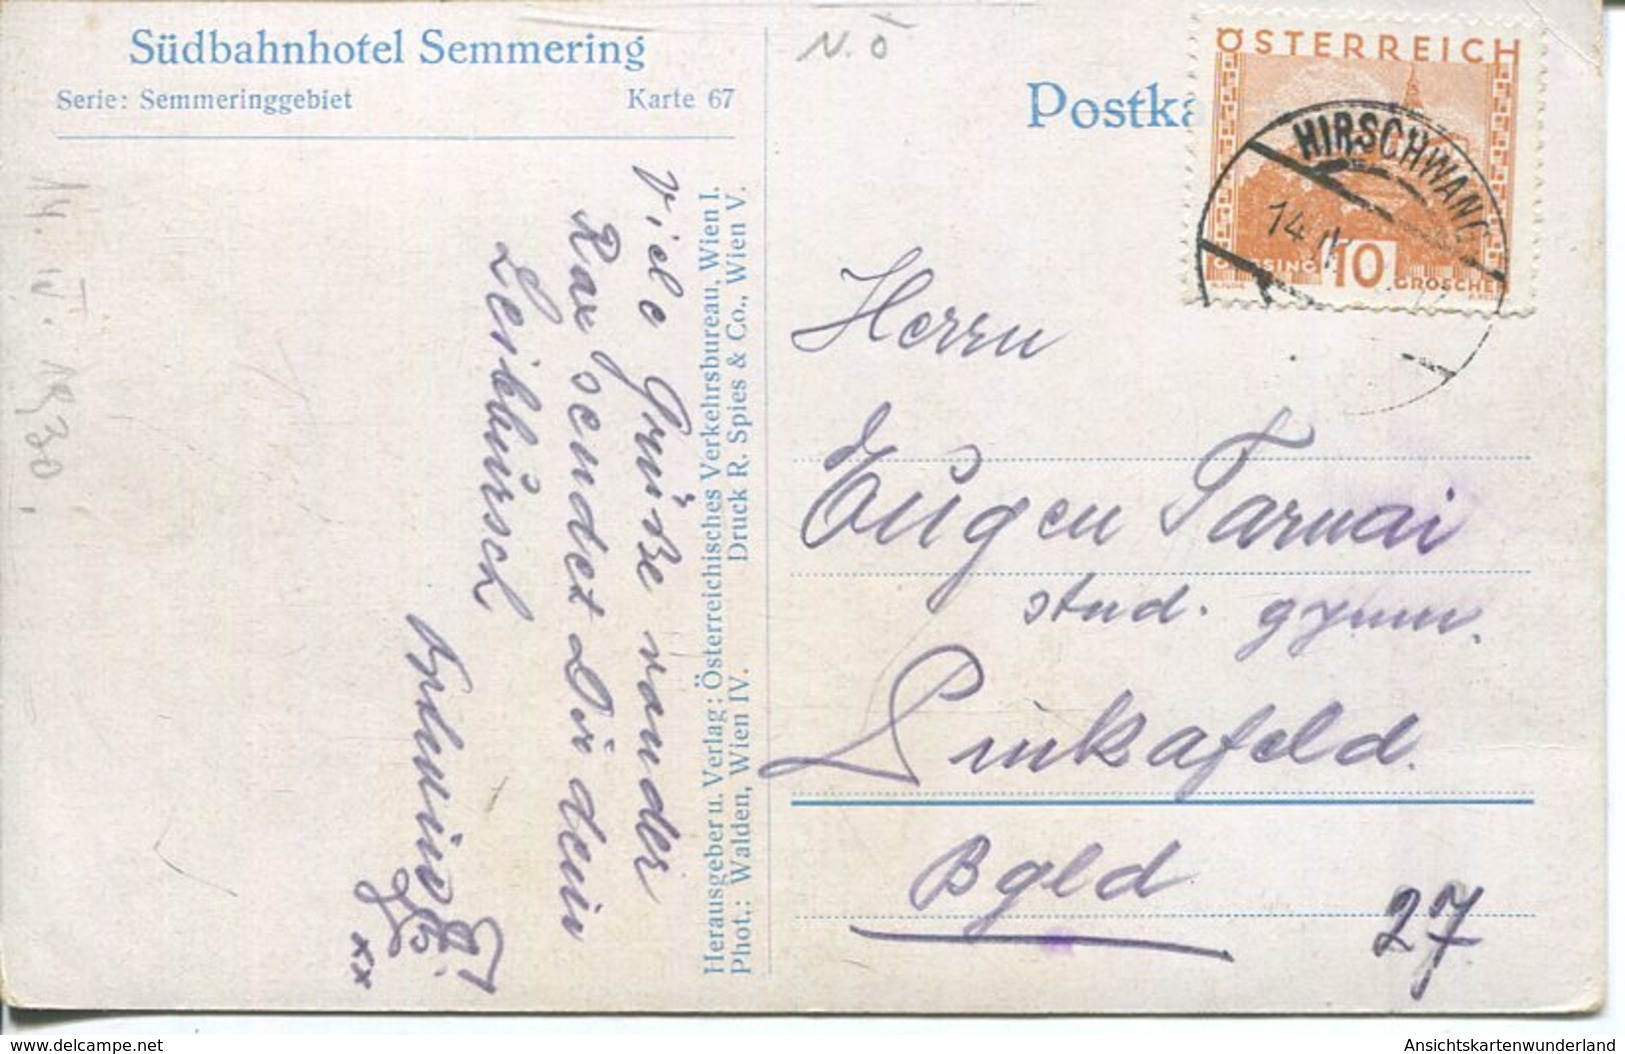 Südbahnhotel Semmering
Serie: Semmeringgebiet
Karte 67
N. Ö
Postka
ÖSTERREICH
HIRSCHWANG
14. IV
GÜSSING 10 GROSCHEN
14. IV. 1930.
Viele Grüße von der
Rax sendet Dir dein
Leibbursch
xx
Herausgeber u. Verlag: Österreichisches Verkehrsbureau, Wien I.
Phot.: Walden, Wien IV. Druck R. Spies & Co., Wien V.
Herrn
Eugen Tarnai
stud. gymn.
Pinkafeld.
Bgld
27
www.delcampe.net
Ansichtskartenwunderland